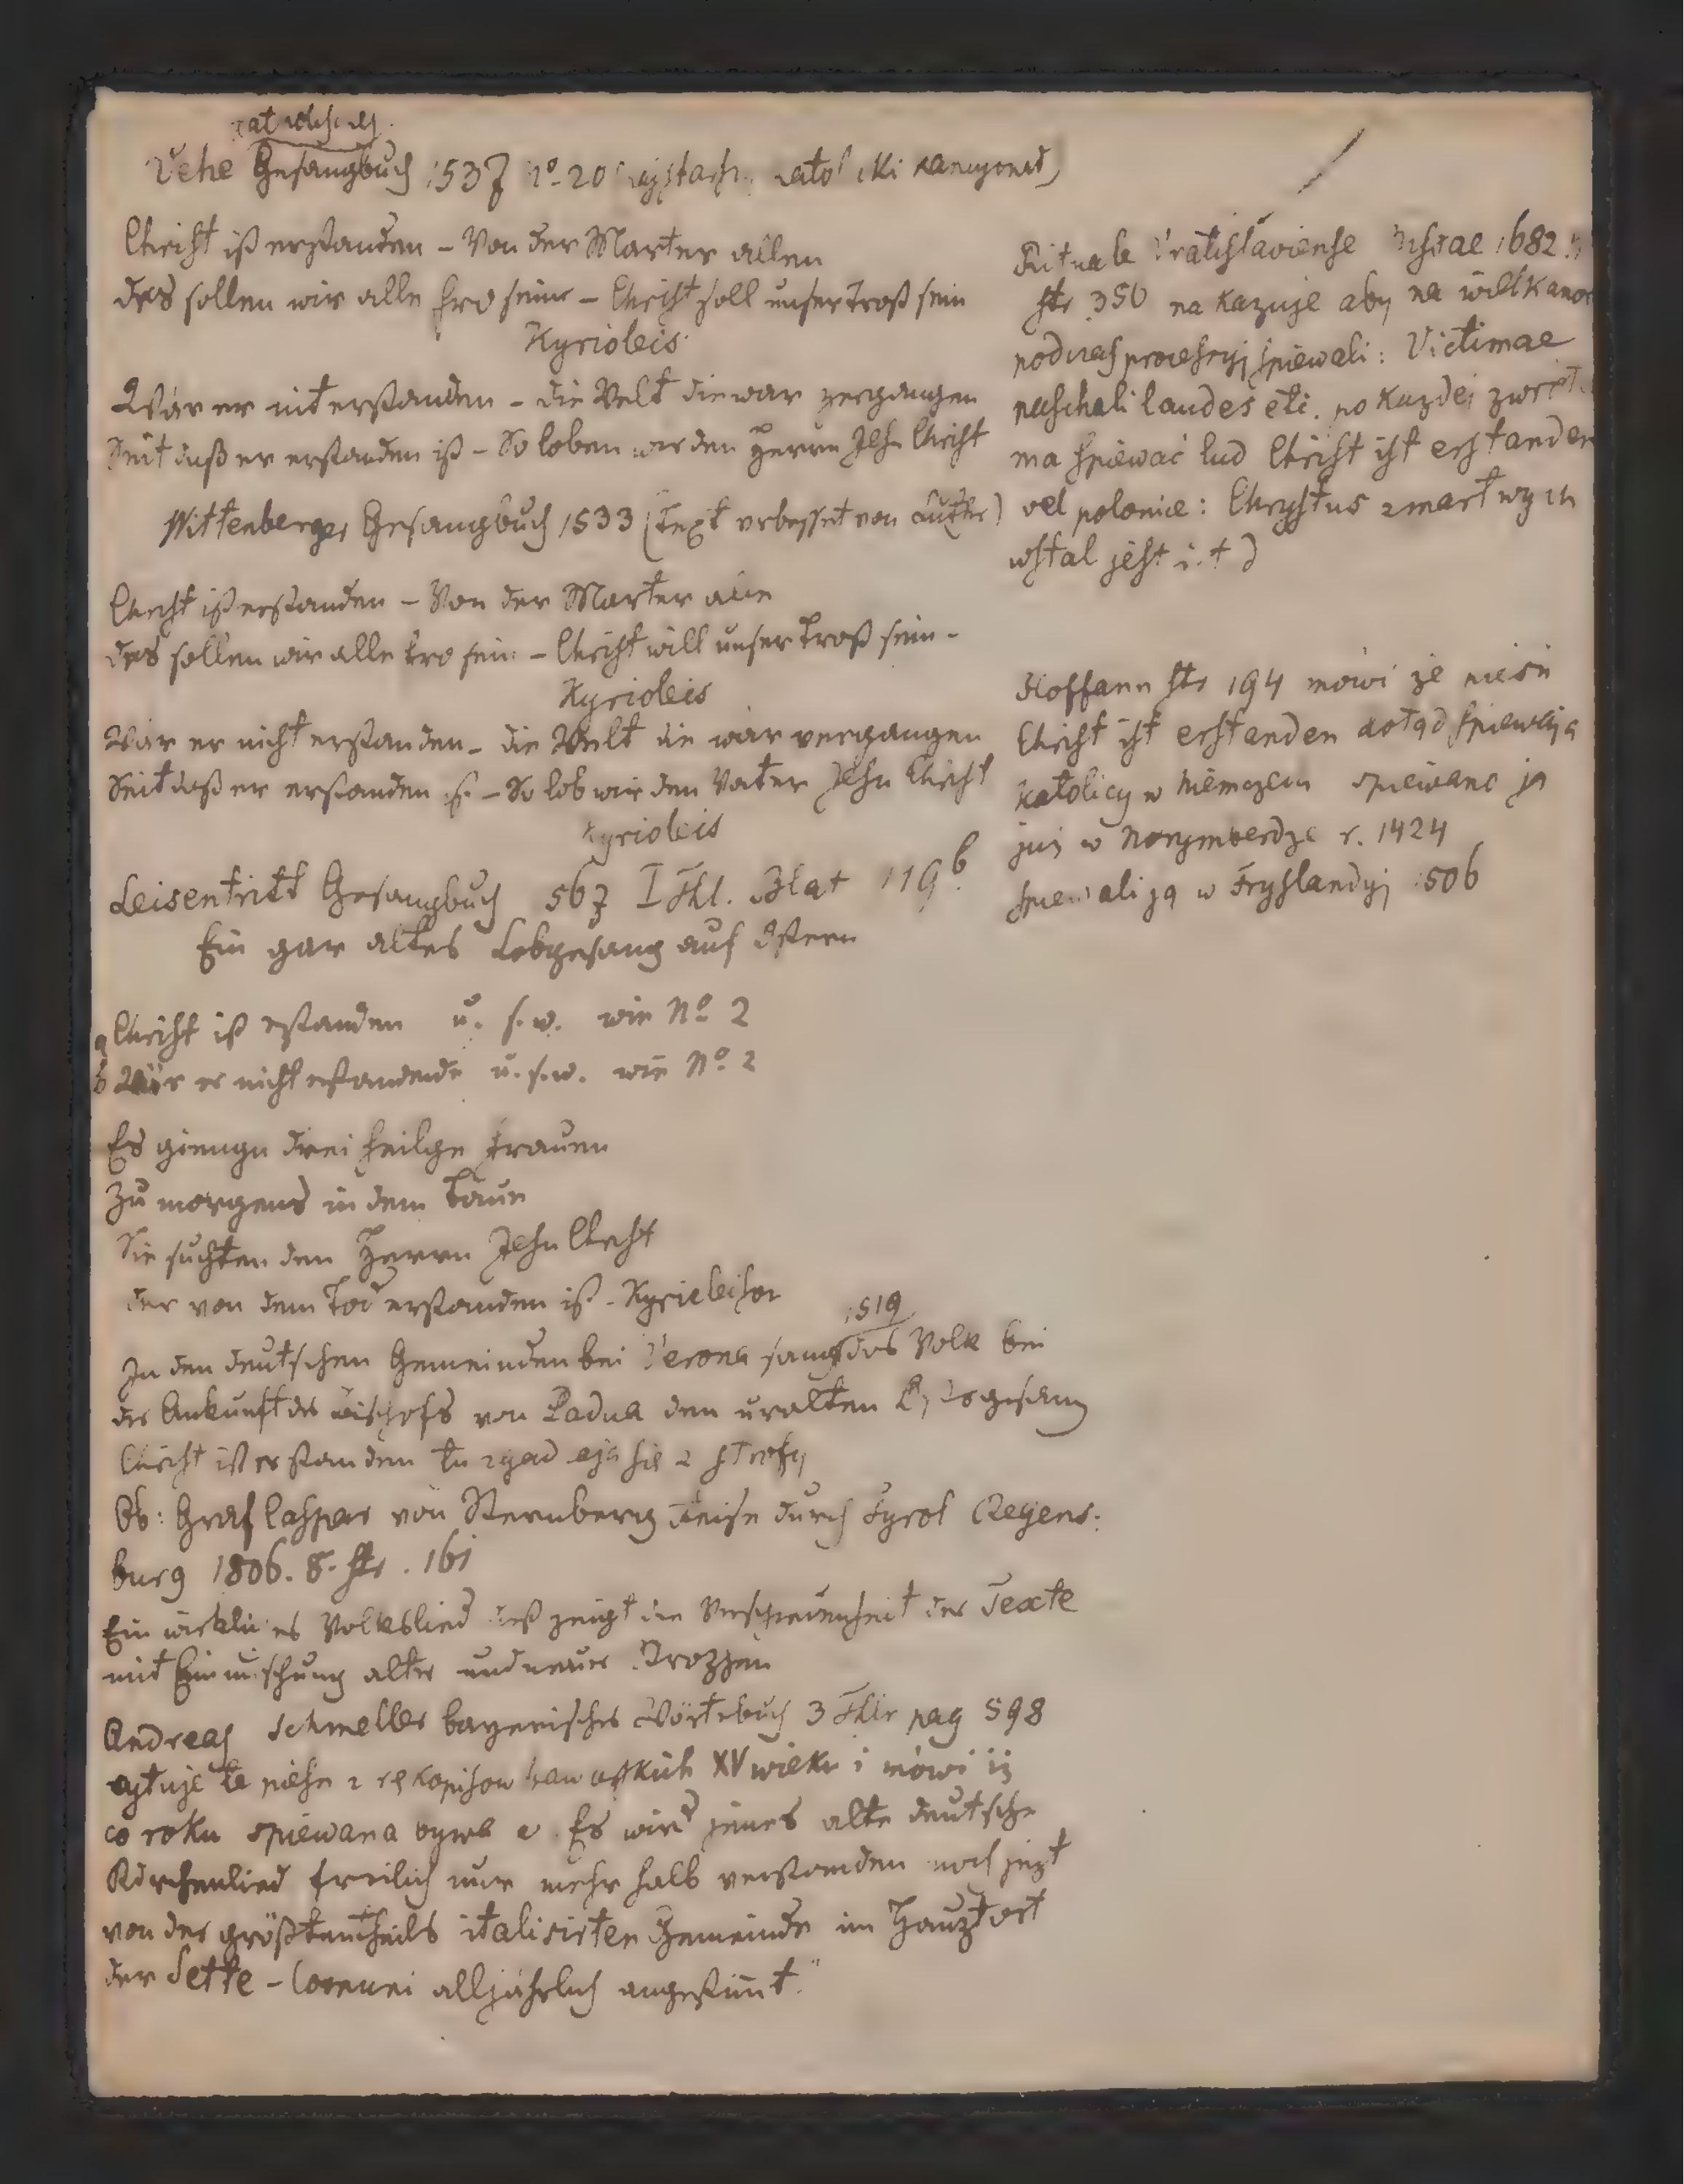 Vehe Gesangbuch 1537 No 20
Christ ist erstanden – Von der Marter allen
des sollen wir alle fro sein – Christ soll unser Trost sein
Kyrioleis
Wär er nit erstanden – die Welt die wär zergangen
Seit daß er erstanden ist – So loben wir den Herrn Jesu Christ
Wittenberger Gesangbuch 1533 (Text verbessert von Luther)
Christ ist erstanden – Von der Marter alle
des sollen wir alle fro sein – Christ will unser Trost sein –
Kyrioleis
Wär er nicht erstanden – die Welt die wär vergangen
Seit daß er erstanden ist – So lob wir den Vater Jesu Christ
Kyrioleis
Leisentritt Gesangbuch 567 I Thl. Blat 119b.
Ein gar altes Lobgesang auf Ostern
a Christ ist erstanden u. s. w. wie No 2
b Wär er nicht erstanden u. s. w. wie No 2
Es giengn drei heilge frauen
Zu morgens in dem Taue
Sie suchten den Herrn Jesu Christ
der von dem Tod erstanden ist – Kyrieleison
1519
In den deutschen Gemeinden bei Verona sang das Volk bei
der Ankunft des Bischofs von Padua den uralten
Christ ist erstanden tu zgadzaja sie 2 strofy
Ob: Graf Caspar von Sternberg Reise durch Tyrol (Regens-
burg 1806. 8. str. 161
Ein wirkliches Volkslied dieß zeigt die Verschiedenheit der Texte
mit Einmischung alter und neuer
Andreas Schmeller bayerisches Wörterbuch 3 Thle pag 598
cytuje te piesn z rękopisow bawarskich XV wieku i mówi iż
co roku spiewana bywa. Es wird jenes alte deutsche
Kirchenlied freilich nur mehr halb verstanden noch jezt
von der größtentheils italisirten Gemeinde im Hauptort
der Sette-Comuni alljährlich angestimt."
Rituale Vratislaviense Nissae 1682
str 350 nakazuje aby na wielkanoc
podczas procesyj spiewali: Victimae
paschali laudes etc. po kazdej zwrotce
ma spiewać lud Christ ist erstanden
vel polonice: Chrystus zmartwych
wstal jest i. t d
Hoffmann str 194 mówi że pieśń
Christ ist erstanden dotąd spiewaja
katolicy w Niemczech spiewano ją
już w Norymberdze r. 1424
spiewali ją w Fryslandyj 1506